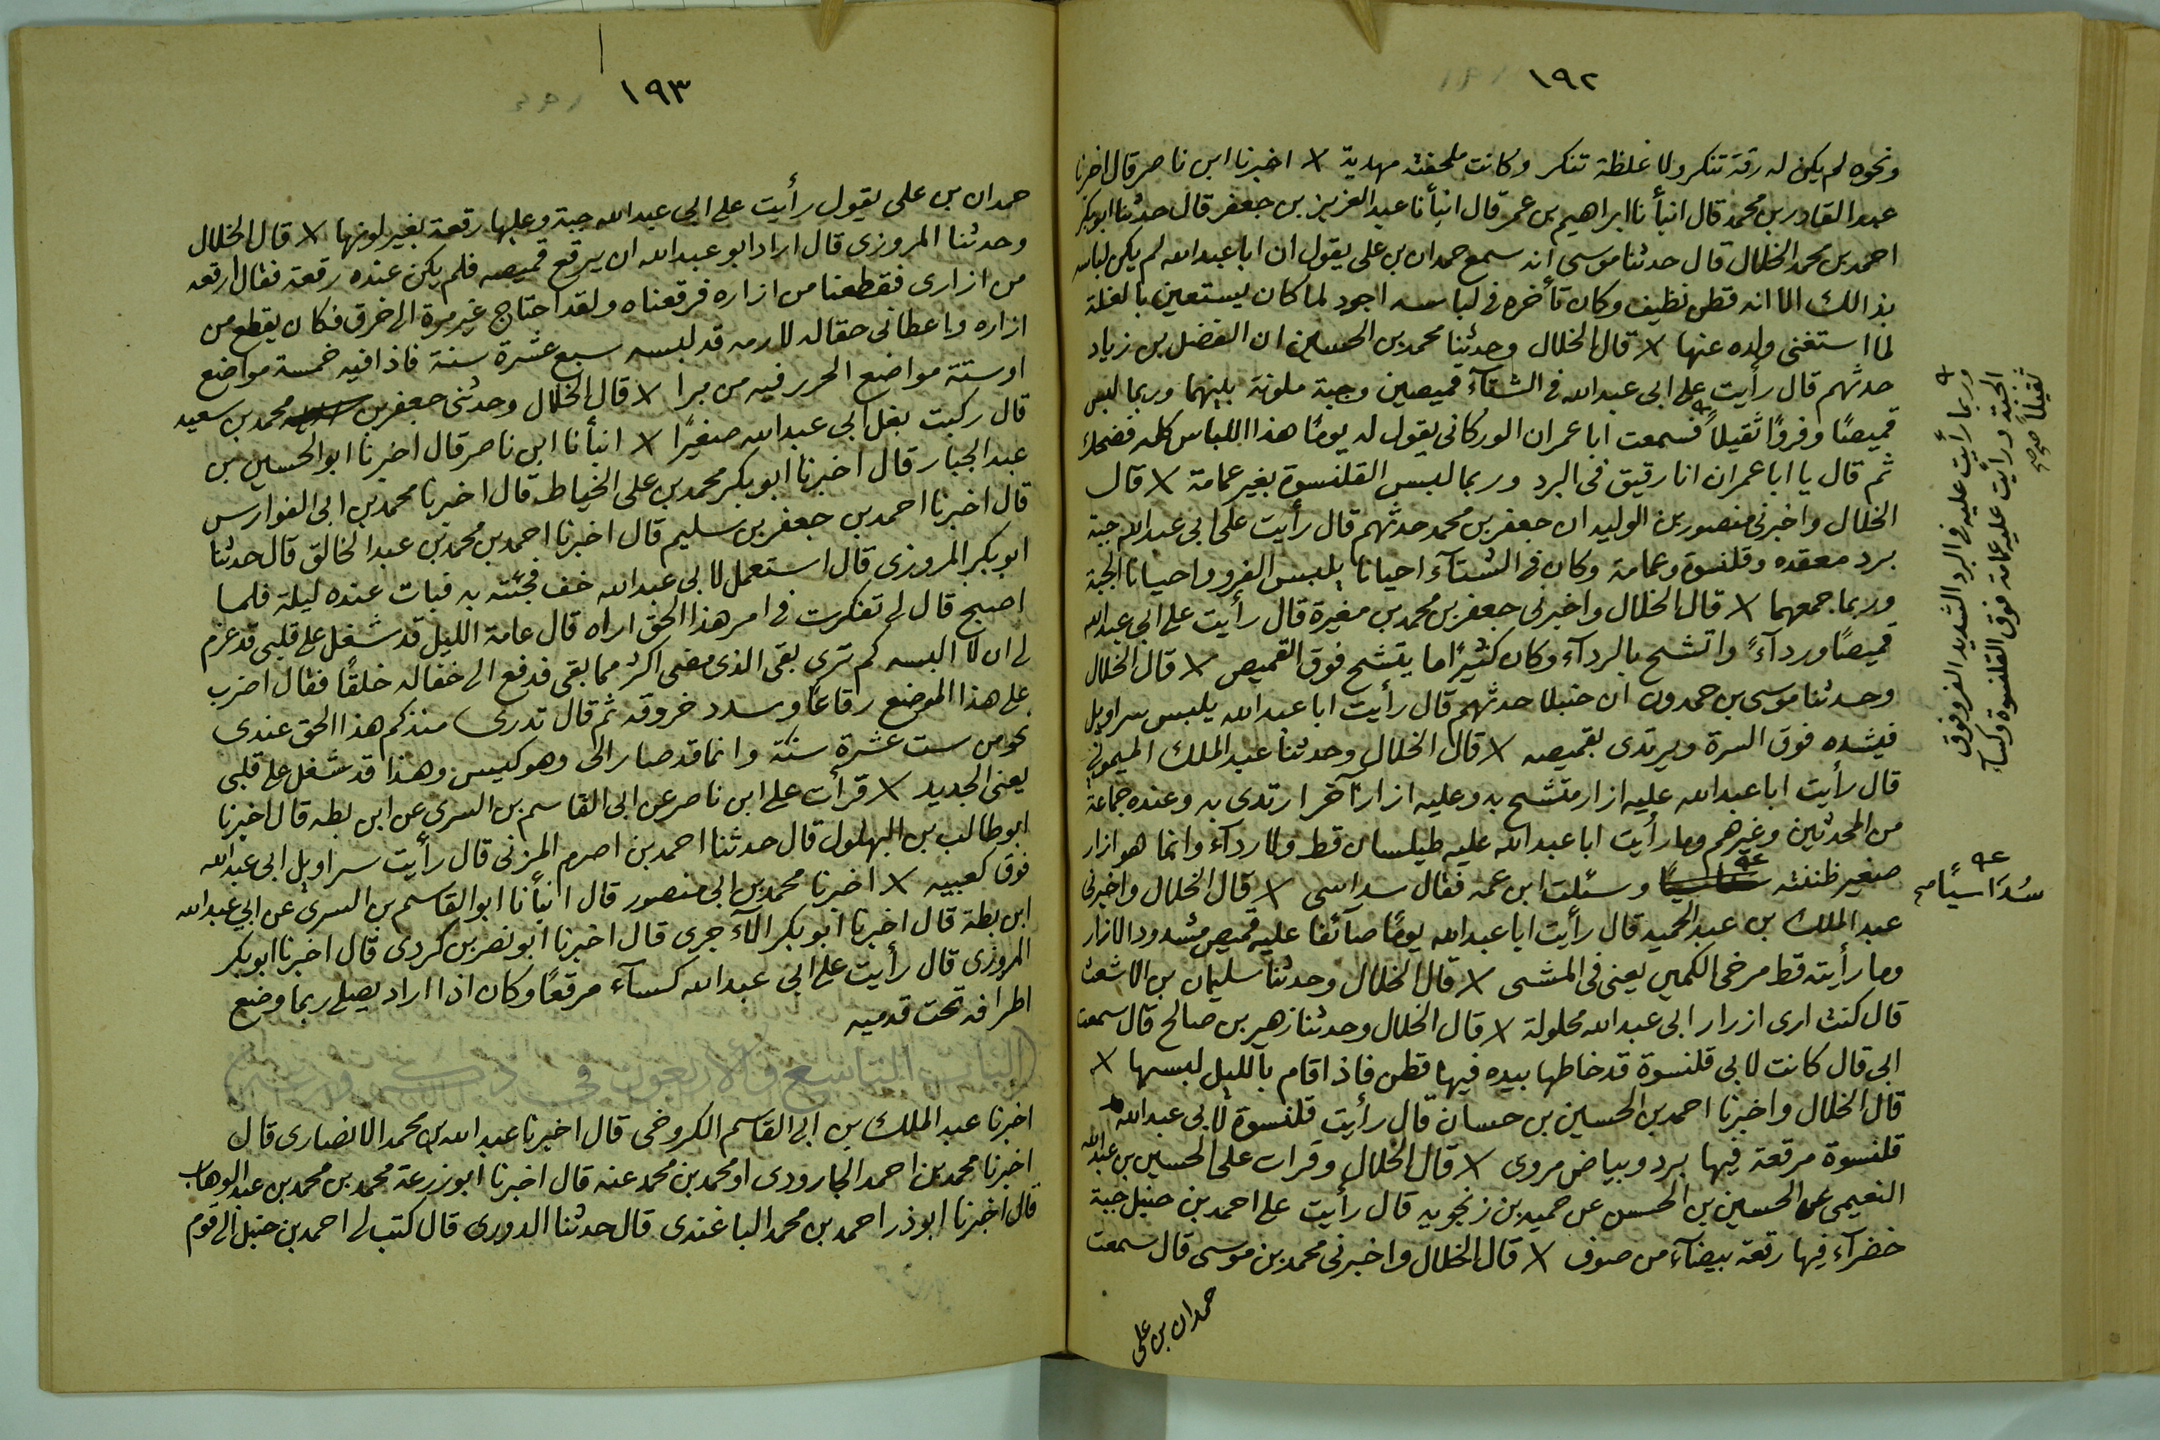 ١٩٢
ونحوه لم يكن له رقة تنكر ولا غلظة تنكر وكانت ملحفته مهدية اخبرنا ابن ناصر قال اخبرنا
عبد القادر بن محمد قال انبأنا ابراهيم بن عمر قال انبأنا عبد العزيز بن جعفر قال حدثنا ابو بكر
احمد بن محمد الخلال قال حدثنا موسى انه سمع حمدان بن علي يقول ان ابا عبد الله لم يكن لباسه
بذالك الا انه قطن نظيف وكان تأخره في لباسه اجود لما كان يستعين بالغلة
لما استغنى ولده عنها قال الخلال وحدثنا محمد بن الحسين ان الفضل بن زياد
حدثهم قال رأيت على ابي عبد الله في الشتآء قميصين وجبة ملونة بينهما وربما لبس
قميصًا وفروًا ثقيلاً فسمعت ابا عمران الوركاني يقول له يومًا هذا اللباس كله فضحك
ثم قال يا ابا عمران انا رقيق في البرد وربما لبس القلنسوة بغير عمامة قال
الخلال واخبرني منصور بن الوليد ان جعفر بن محمد حدثهم قال رأيت على ابي عبد الله جبة
برد معقده وقلنسوة وعمامة وكان في الشتآء احيانا يلبس الفرو واحيانا الجبة
وربما جمعهما قال الخلال واخبرني جعفر بن محمد بن مغيرة قال رأيت على ابي عبد الله
قميصًا وردآءً واتشح بالردآء وكان كثيرًا ما يتشح فوق القميص قال الخلال
وحدثنا موسى بن حمدون ان حنبلا حدثهم قال رأيت ابا عبد الله يلبس سراويل
فيشده فوق السرة ويرتدى بقميصه قال الخلال وحدثنا عبد الملك الميموني
قال رأيت ابا عبد الله عليه ازار متشح به وعليه ازار آخر ارتدى به وعنده جماعة
من المحدثين وغيرهم وما رأيت ابا عبد الله عليه طيلسان قط ولا ردآء وانما هو ازار
صغير ظننته وسئلت ابن عمه فقال سداسى قال الخلال واخبرني
عبد الملك بن عبد الحميد قال رأيت ابا عبد الله يومًا صآئفا عليه قميص مشدود الازار
وما رأيته قط مرخى الكمين يعني في المشى قال الخلال وحدثنا سليمان بن الاشعث
قال كنت ارى ازرار ابي عبد الله محلولة قال الخلال وحدثنا زهير بن صالح قال سمعت
ابي قال كانت لابي قلنسوة قد خاطها بيده فيها قطن فاذا قام بالليل لبسها
قال الخلال واخبرنا احمد بن الحسين بن حسان قال رأيت قلنسوة لابي عبد الله
قلنسوة مرقعة فيها برد وبياض مروى قال الخلال وقرات على الحسين بن عبد الله
النعيمى عن الحسين بن الحسن عن حميد بن زنجويه قال رأيت على احمد بن حنبل جبة
خضرآء فيها رقعة بيضآء من صوف قال الخلال واخبرني محمد بن موسى قال سمعت
حمدان بن على
وربما رأيت عليه في البرد الشديد الفرو فوق
الجبة ورأيت عليه عمامة فوق القلنسوة وكسآء
ثقيلاً
سُدَاسيًا
١٩٣
حمدان بن على يقول رأيت على ابي عبد الله جبة وعليها رقعة بغير لونها قال الخلال
وحدثنا المروزى قال اراد ابو عبد الله ان يرقع قميصه فلم يكن عنده رقعة فقال ارقعه
من ازارى فقطعنا من ازاره فرقعناه ولقد احتاج غير مرة الى خرق فكان يقطع من
ازاره واعطاني لارمه قد لبسه سبع عشرة سنة فاذا فيه خمسة مواضع
او ستة مواضع الحرر فيه من برا قال الخلال وحدثني جعفر بن محمد بن سعيد
قال ركبت بغل ابي عبد الله صغيرًا انبأنا ابن ناصر قال اخبرنا ابو الحسين بن
عبد الجبار قال اخبرنا ابو بكر محمد بن على الخياط قال اخبرنا محمد بن ابى الفوارس
قال اخبرنا احمد بن جعفر بن سليم قال اخبرنا احمد بن محمد بن عبد الخالق قال حدثنا
ابو بكر المروزى قال استعمل لابي عبد الله خف فجئته به فبات عنده ليلة فلما
اصبح قال لي تفكرت في امر هذا الخق اراه قال عامة الليل قد شغل على قلبي قد عزم
لي ان لا البسه كم ترى بقى الذى مضى اكثر مما بقى فدفع الى خفا له خلقًا فقال اضرب
على هذا الموضع رقاعًا وسدد خروقه ثم قال تدرى منذ كم هذا الخق عندى
نحو من ست عشرة سنة وانما قد صار الى وهو كبيس وهذا قد شغل على قلبي
يعني الجديد قرأت على ابن ناصر عن ابي القاسم بن السرى عن ابن بطه قال اخبرنا
ابو طالب بن البهلول قال حدثنا احمد بن اصرم المزنى قال رأيت سراويل ابى عبد الله
فوق كعبيه اخبرنا محمد بن ابي منصور قال انبأنا ابو القاسم بن السرى عن ابي عبد الله
ابن بطة قال اخبرنا ابو بكر الآجرى قال اخبرنا ابو نصر بن كردى قال اخبرنا ابو بكر
المروزى قال رأيت على ابي عبد الله كسآء مرقعًا وكان اذا اراد يصلي ربما وضع
اطرافه تحت قدميه
الباب التاسع والاربعون في ذكر ورعه
اخبرنا عبد الملك بن ابي القاسم الكروخى قال اخبرنا عبد الله بن محمد الانصارى قال
اخبرنا محمد بن احمد الجارودى او محمد بن محمد عنه قال اخبرنا ابو زرعة محمد بن محمد بن عبد الوهاب
قال اخبرنا ابو ذر احمد بن محمد الباغندى قال حدثنا الدورى قال كتب لي احمد بن حنبل الى قوم